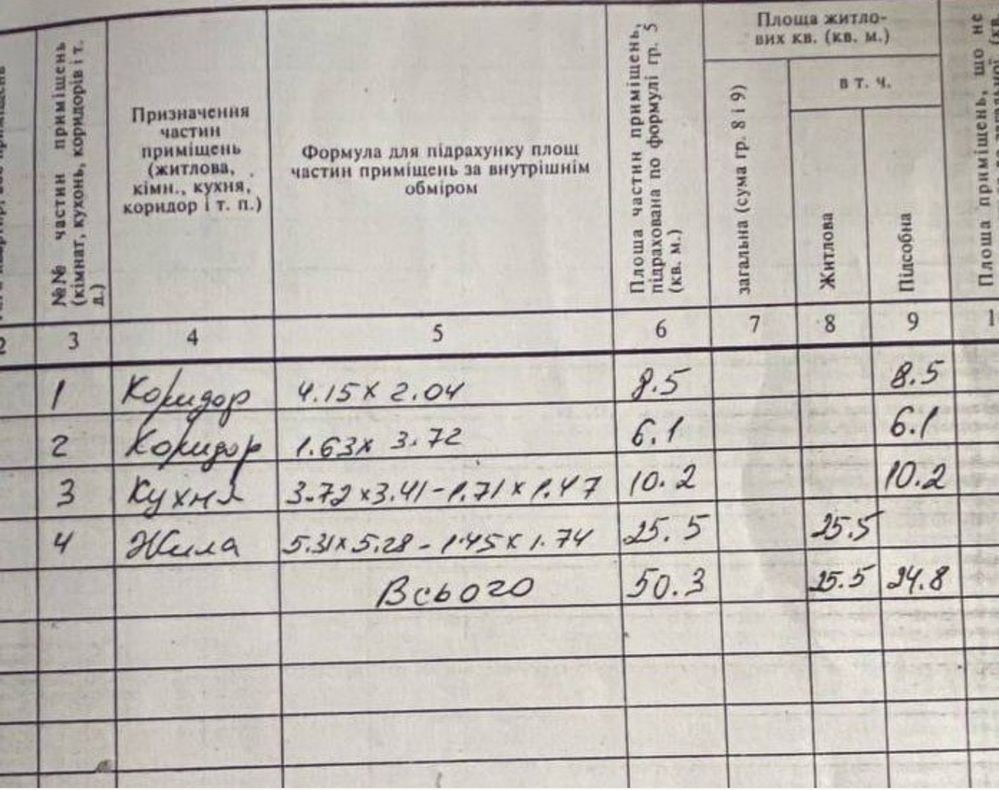 №№ частин приміщень
(кімнат, кухонь, коридорів і т.
д.)
Призначення
частин
приміщень
(житлова,
кімн., кухня,
коридор і т. п.)
Формула для підрахунку площ
частин приміщень за внутрішнім
обміром
Площа частин приміщень,
підрахована по формулі гр. 5
(кв. м.)
Площа житло-
вих кв. (кв. м.)
загальна (сума гр. 8 і 9)
в т. ч.
Житлова
Підсобна
Площа приміщень, що не
2 3 4 5 6 7 8 9 1
1 Коридор 4.15 x 2.04 8.5 8.5
2 Коридор 1.63 x 3.72 6.1 6.1
3 Кухня 3.72 x 3.41 - 1.71 x 1.47 10.2 10.2
4 Жила 5.31 x 5.28 - 1.45 x 1.74 25.5 25.5
Всього 50.3 25.5 24.8